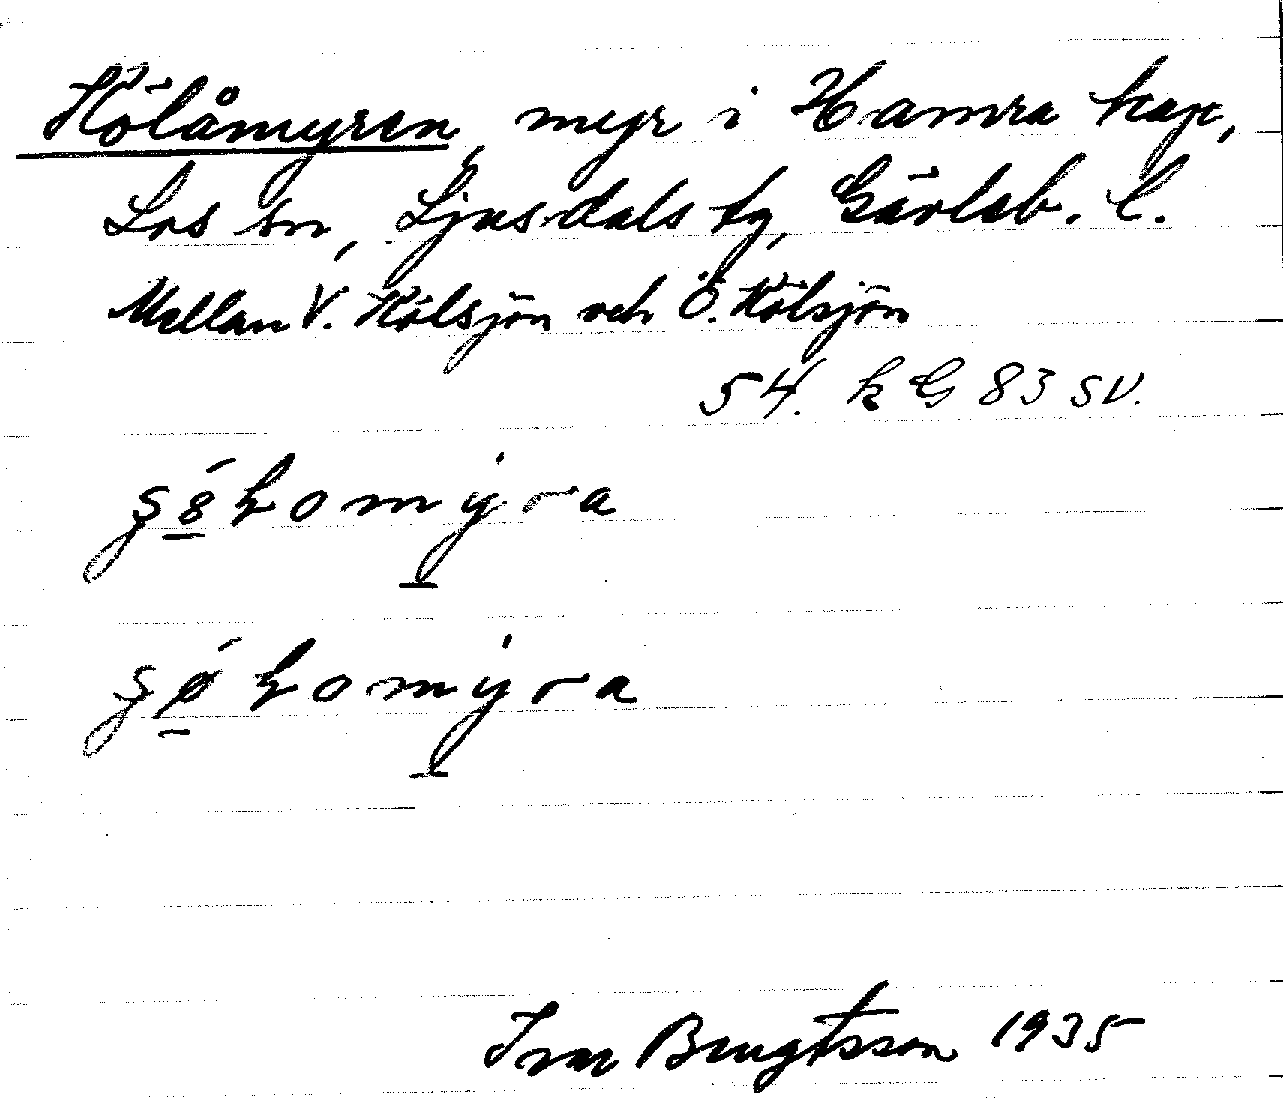 Kölåmyren, myr i Hamra kap,
Los sn, Ljusdals tg, Gävleb. l.
Mellan V. Kölsjön och Ö. Kölsjön
54. k G 83 SV.
Ivar Bengtsson 1935